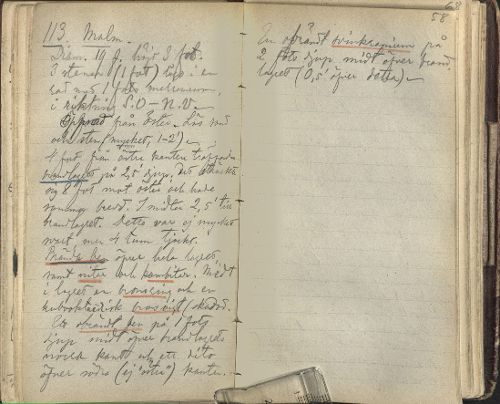 113. Malm.
Diam. 19 f. höjd 3 fot.
3 stenar (1 fot) låg i en
rad med 1 fots mellanrum,
i riktning S.O – N.V.
Öppnad från öster. Lös jord
och sten (mycket, 1-2').
4 fot från östra kanten träffades
brandlagret på 2,5 djup, det sträckte
sig 8 fot mot öster och hade
samma bredd. I midten 2,5' till
brandlagret. Detta var ej mycket
svart, men 4 tum tjockt.
Brända ben öfver hela lagret,
samt nitar och kambitar. Midt
i lagret en bronsring och en
kubooktaedrisk bronsvigt, skadad.
Ett obrändt ben på 1 fots
djup midt öfver brandlagrets
norra kant och ett dito
öfver södra (ej "östra") kanten.
68
58
An obrändt svinkranium på
2 fots djup midt öfver brand
lagret (0,5' öfver detta).